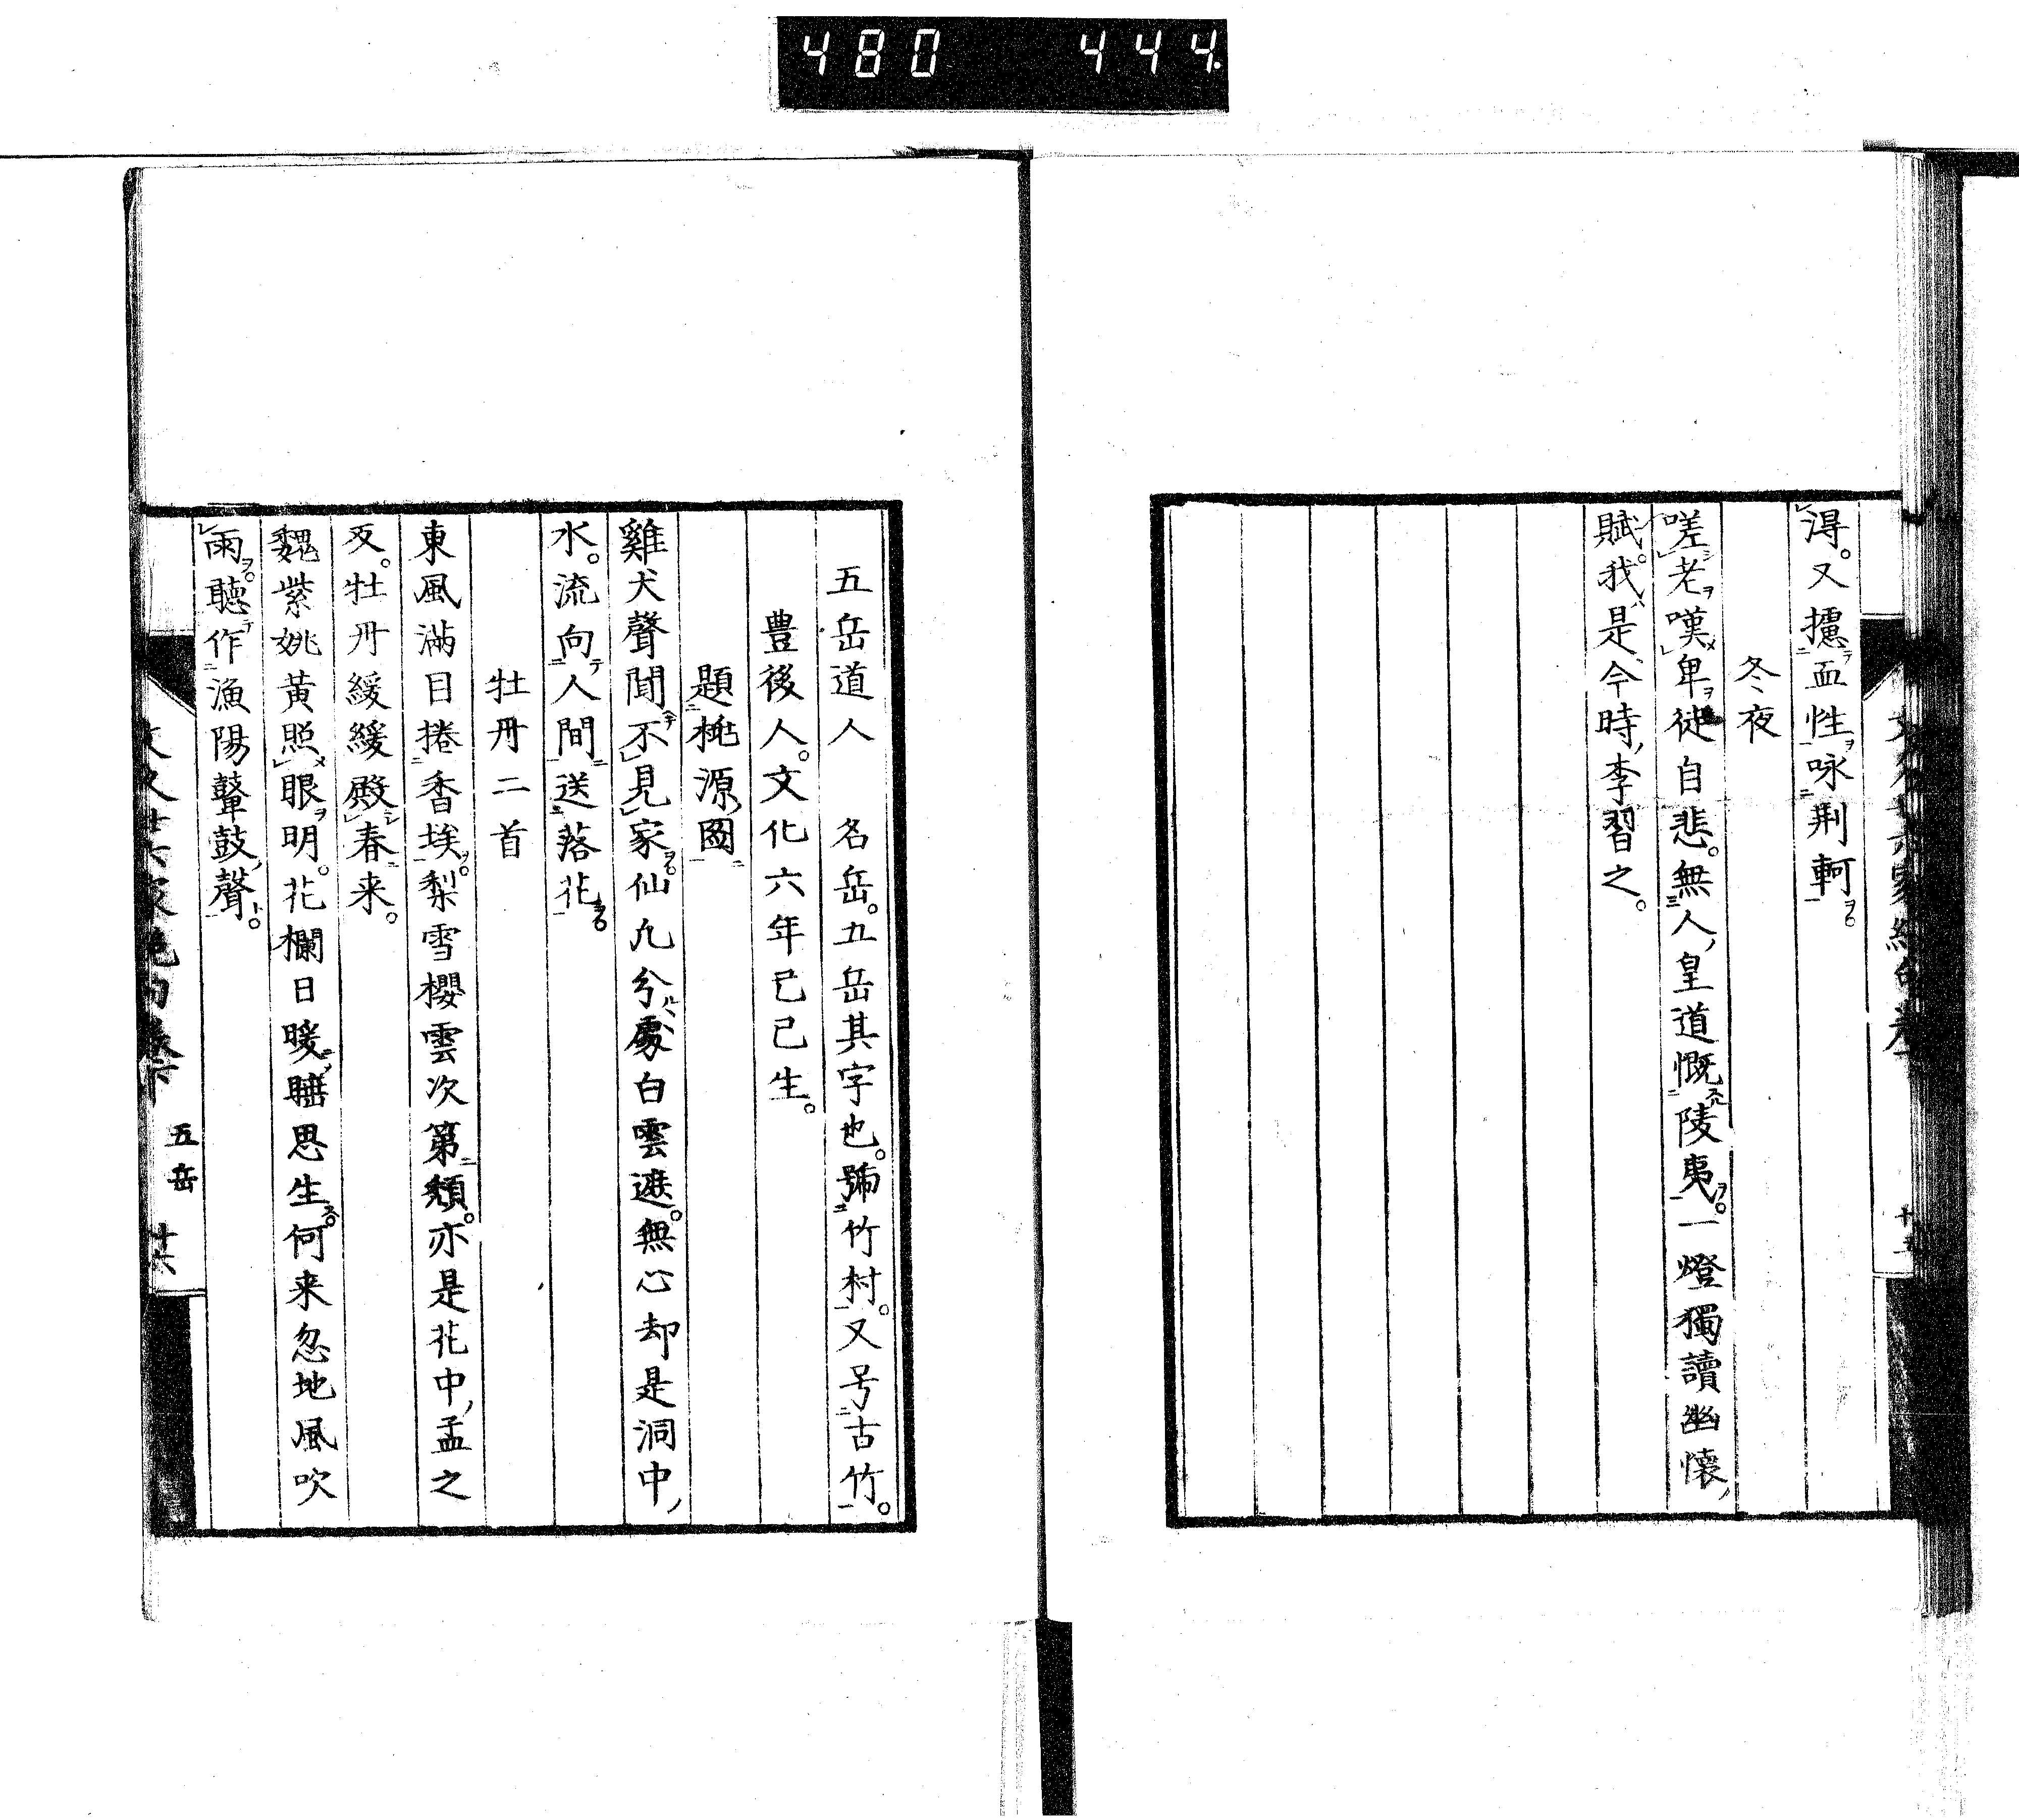 480 444.
得。又攄血性咏荆軻。
冬夜
嗟老嘆卑徒自悲。無人皇道慨陵夷。一燈獨讀幽懷
賦。我是今時李習之。
五岳道人 名岳。五岳其字也。號竹村。又号古竹。
豊後人。文化六年己巳生。
題桃源圖
雞犬聲聞不見家。仙凡分處白雲遮。無心却是洞中
水。流向人間送落花。
牡丹二首
東風滿目捲香埃。梨雪櫻雲次第頹。亦是花中孟之
反。牡丹緩緩殿春来。
魏紫姚黃照眼明。花欄日暖睡思生。何来忽地風吹
雨。聽作漁陽鼙鼓聲。
五岳
廿六